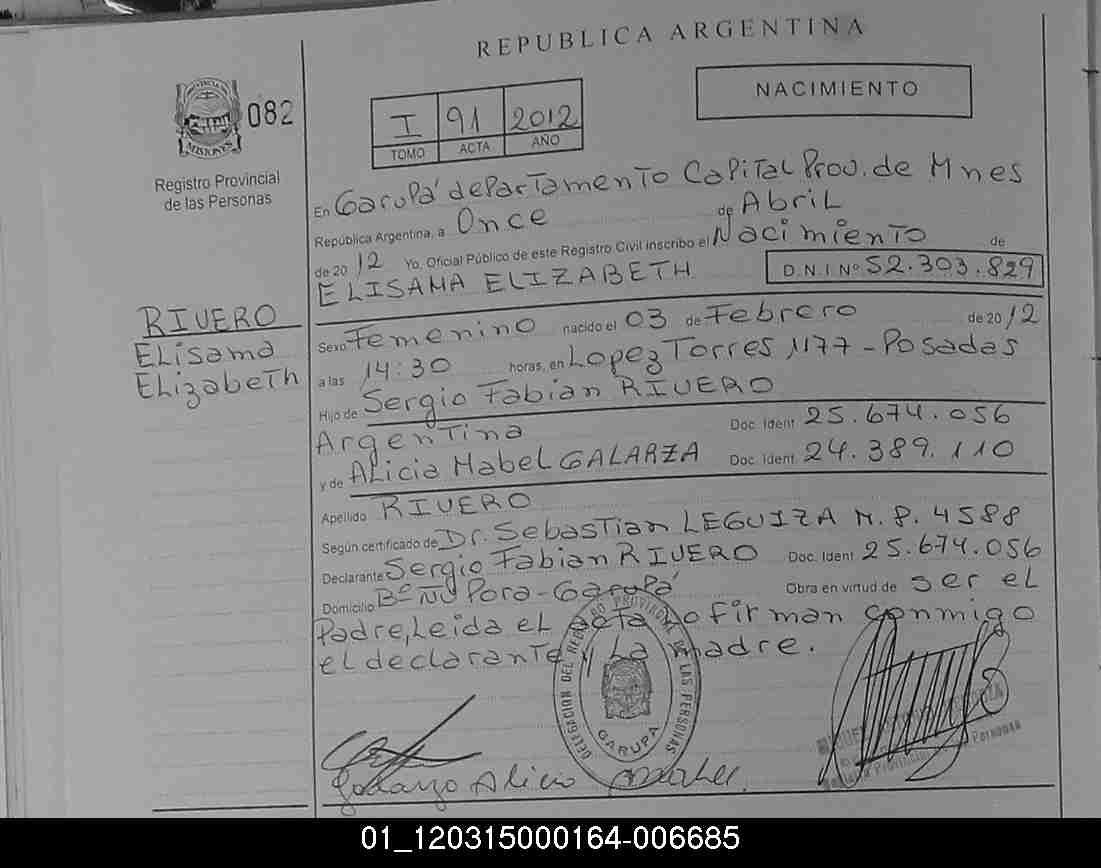 REPUBLICA ARGENTINA
NACIMIENTO
PROVINCIA
MISIONES
082
Registro Provincial
de las Personas
I 91 2012
TOMO ACTA AÑO
En Garupá departamento Capital Prov. de Mnes
República Argentina, a Once de Abril
de 20 12 Yo, Oficial Público de este Registro Civil inscribo el Nacimiento de
ELISAMA ELIZABETH D.N.I Nº 52.303.829
RIVERO
Elisama
Elizabeth
Sexo Femenino nacido el 03 de Febrero de 20 12
a las 14:30 horas, en Lopez Torres 1177 - Posadas
Hijo de Sergio Fabian RIVERO
Argentina Doc. Ident 25.674.056
y de Alicia Mabel GALARZA Doc. Ident. 24.389.110
Apellido RIVERO
Según certificado de Dr. Sebastian LEGUIZA M.P. 4588
Declarante Sergio Fabian RIVERO Doc. Ident 25.674.056
Domicilio Bº Ñu Pora - Garupá Obra en virtud de ser el
Padre, Leida el acta lo firman conmigo
el declarante y La madre.
DELEGACION DEL REGISTRO PROVINCIAL DE LAS PERSONAS
GARUPA
Galarza Alicia Mabel
01_120315000164-006685